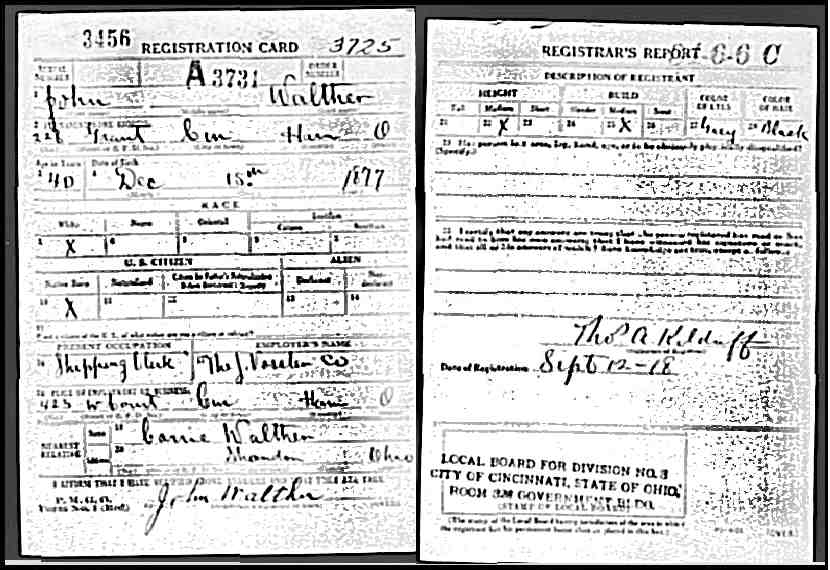 3456 REGISTRATION CARD 3725
SERIAL NUMBER A 3731 ORDER NUMBER
1 John Walther
2 PERMANENT HOME ADDRESS
228 Grant Cin Ham O
Age in Years Date of Birth
3 40 4 Dec 15th 1877
RACE
White Negro Oriental Indian
Citizen
5 X 6 7 8 9
U. S. CITIZEN ALIEN
Native Born Naturalized Citizen by Father's Naturalization Declarant Non-declarant
10 X 11 12 13 14
15
PRESENT OCCUPATION EMPLOYER'S NAME
16 Shipping Clerk The J. Co
PLACE OF EMPLOYMENT OR BUSINESS
425 W Court Cin Ham O
NEAREST RELATIVE
Name 19 Carrie Walther
Address 20 Shandon Ohio
I AFFIRM THAT I HAVE VERIFIED ABOVE ANSWERS AND THAT THEY ARE TRUE
P. M. G. O.
Form No. 1 (Red) John Walther
REGISTRAR'S REPORT 6-6 C
DESCRIPTION OF REGISTRANT
HEIGHT BUILD COLOR OF EYES COLOR OF HAIR
Tall Medium Short Slender Medium Stout
21 22 X 23 24 25 X 26 27 Gray 28 Black
29 Has person lost arm, leg, hand, eye, or is he obviously physically disqualified?
(Specify.)
30 I certify that my answers are true; that the person registered has read or has
had read to him his own answers; that I have witnessed his signature or mark,
and that all of his answers of which I have knowledge are true, except as follows:
Thos A Kilduff
Date of Registration Sept 12-18
LOCAL BOARD FOR DIVISION NO. 3
CITY OF CINCINNATI, STATE OF OHIO,
ROOM 328 GOVERNMENT BLDG.
(STAMP OF LOCAL BOARD)
(The stamp of the Local Board having jurisdiction of the area in which
the registrant has his permanent home shall be placed in this box.)
(OVER)